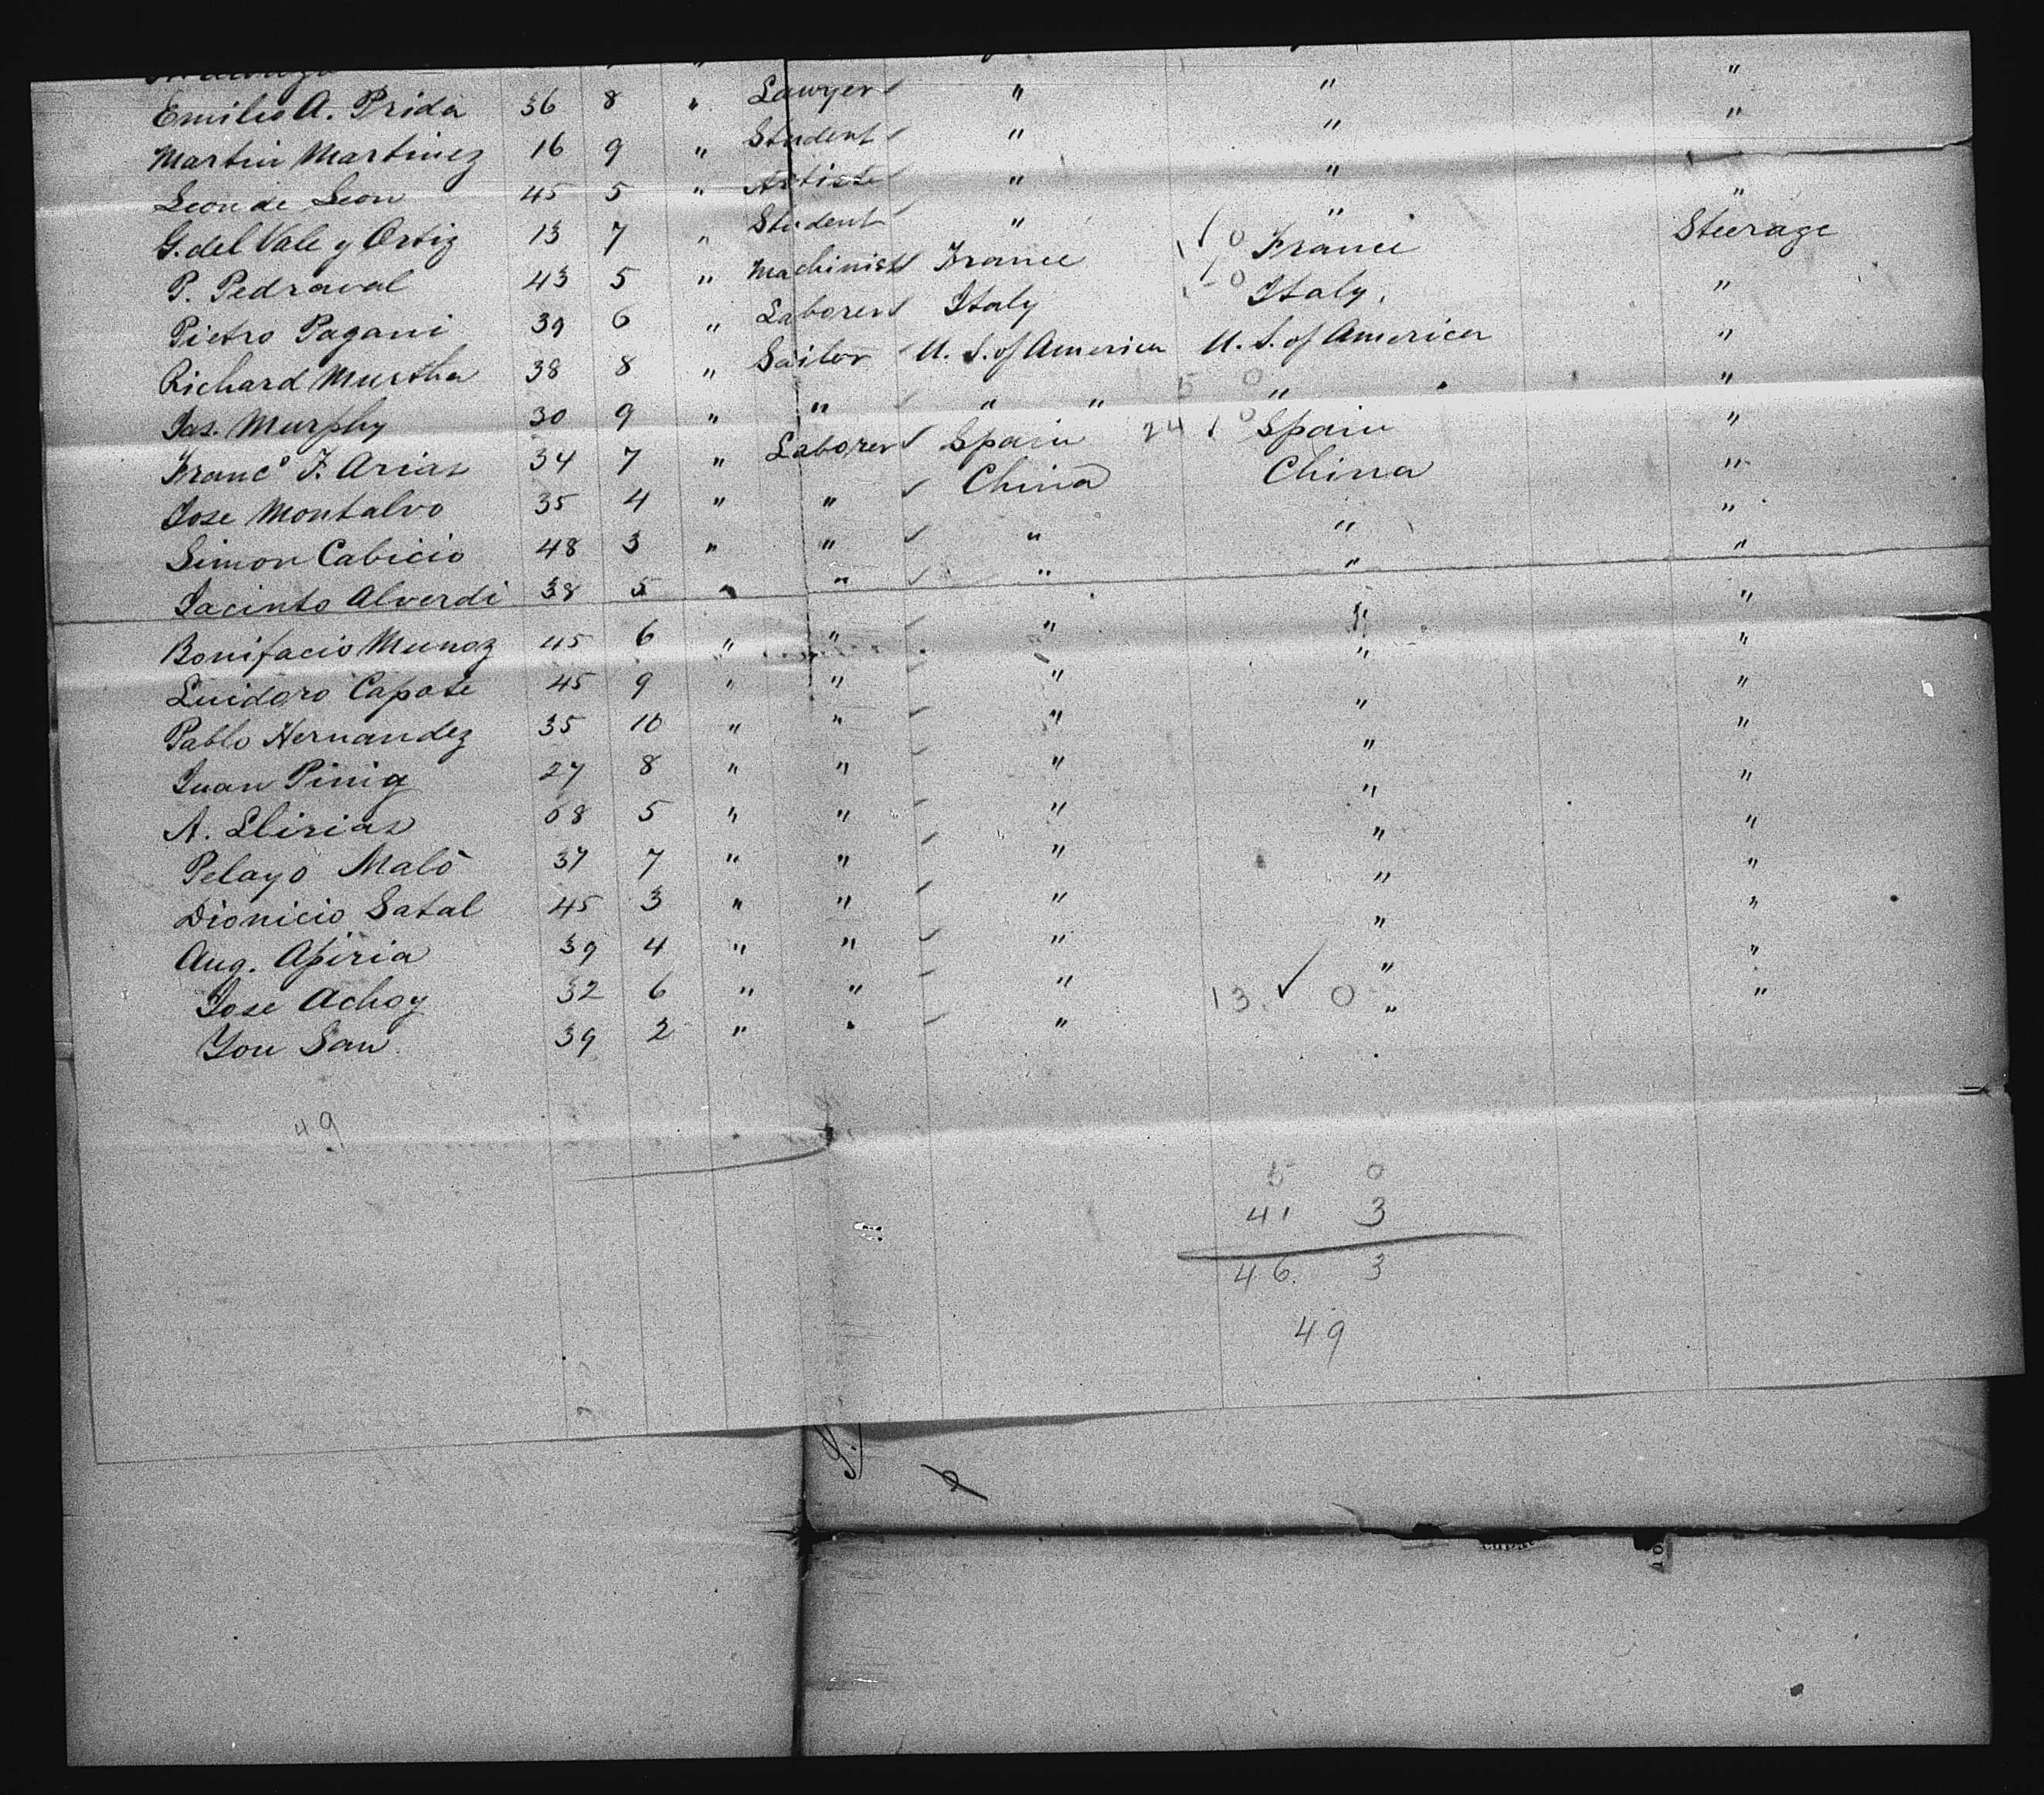 Emilio A. Prida 36 8 " Lawyer " " "
Martin Martinez 16 9 " Student " " "
Leon de Leon 45 5 " Artiste " "
G. del Vale y Ortiz 13 7 " Student " " "
P. Pedraval 43 5 " Machinist France 1 0 France Steerage
Pietro Pagani 39 6 " Laborer Italy 1 0 Italy. "
Richard Murtha 38 8 " Sailor U. S. of America U. S. of America "
Jas. Murphy 30 9 " " " " 5 0 " "
Francº F. Arias 34 7 " Laborer Spain 24 1 0 Spain "
Jose Montalvo 35 4 " " China China "
Simon Cabicio 48 3 " " " " "
Jacinto Alverdi 38 5 " " " " "
Bonifacio Munoz 45 6 " " " " "
Luidoro Capote 45 9 " " " " "
Pablo Hernandez 35 10 " " " " "
Juan Pinig 27 8 " " " " "
A. Llirias 68 5 " " " " "
Pelayo Malo 37 7 " " " " "
Dionicio Satal 45 3 " " " " "
Aug. Apiria 39 4 " " " " "
Jose Achoy 32 6 " " " " "
You San 39 2 " " " 13. ✓ 0 " "
49
5 0
41 3
46. 3
49